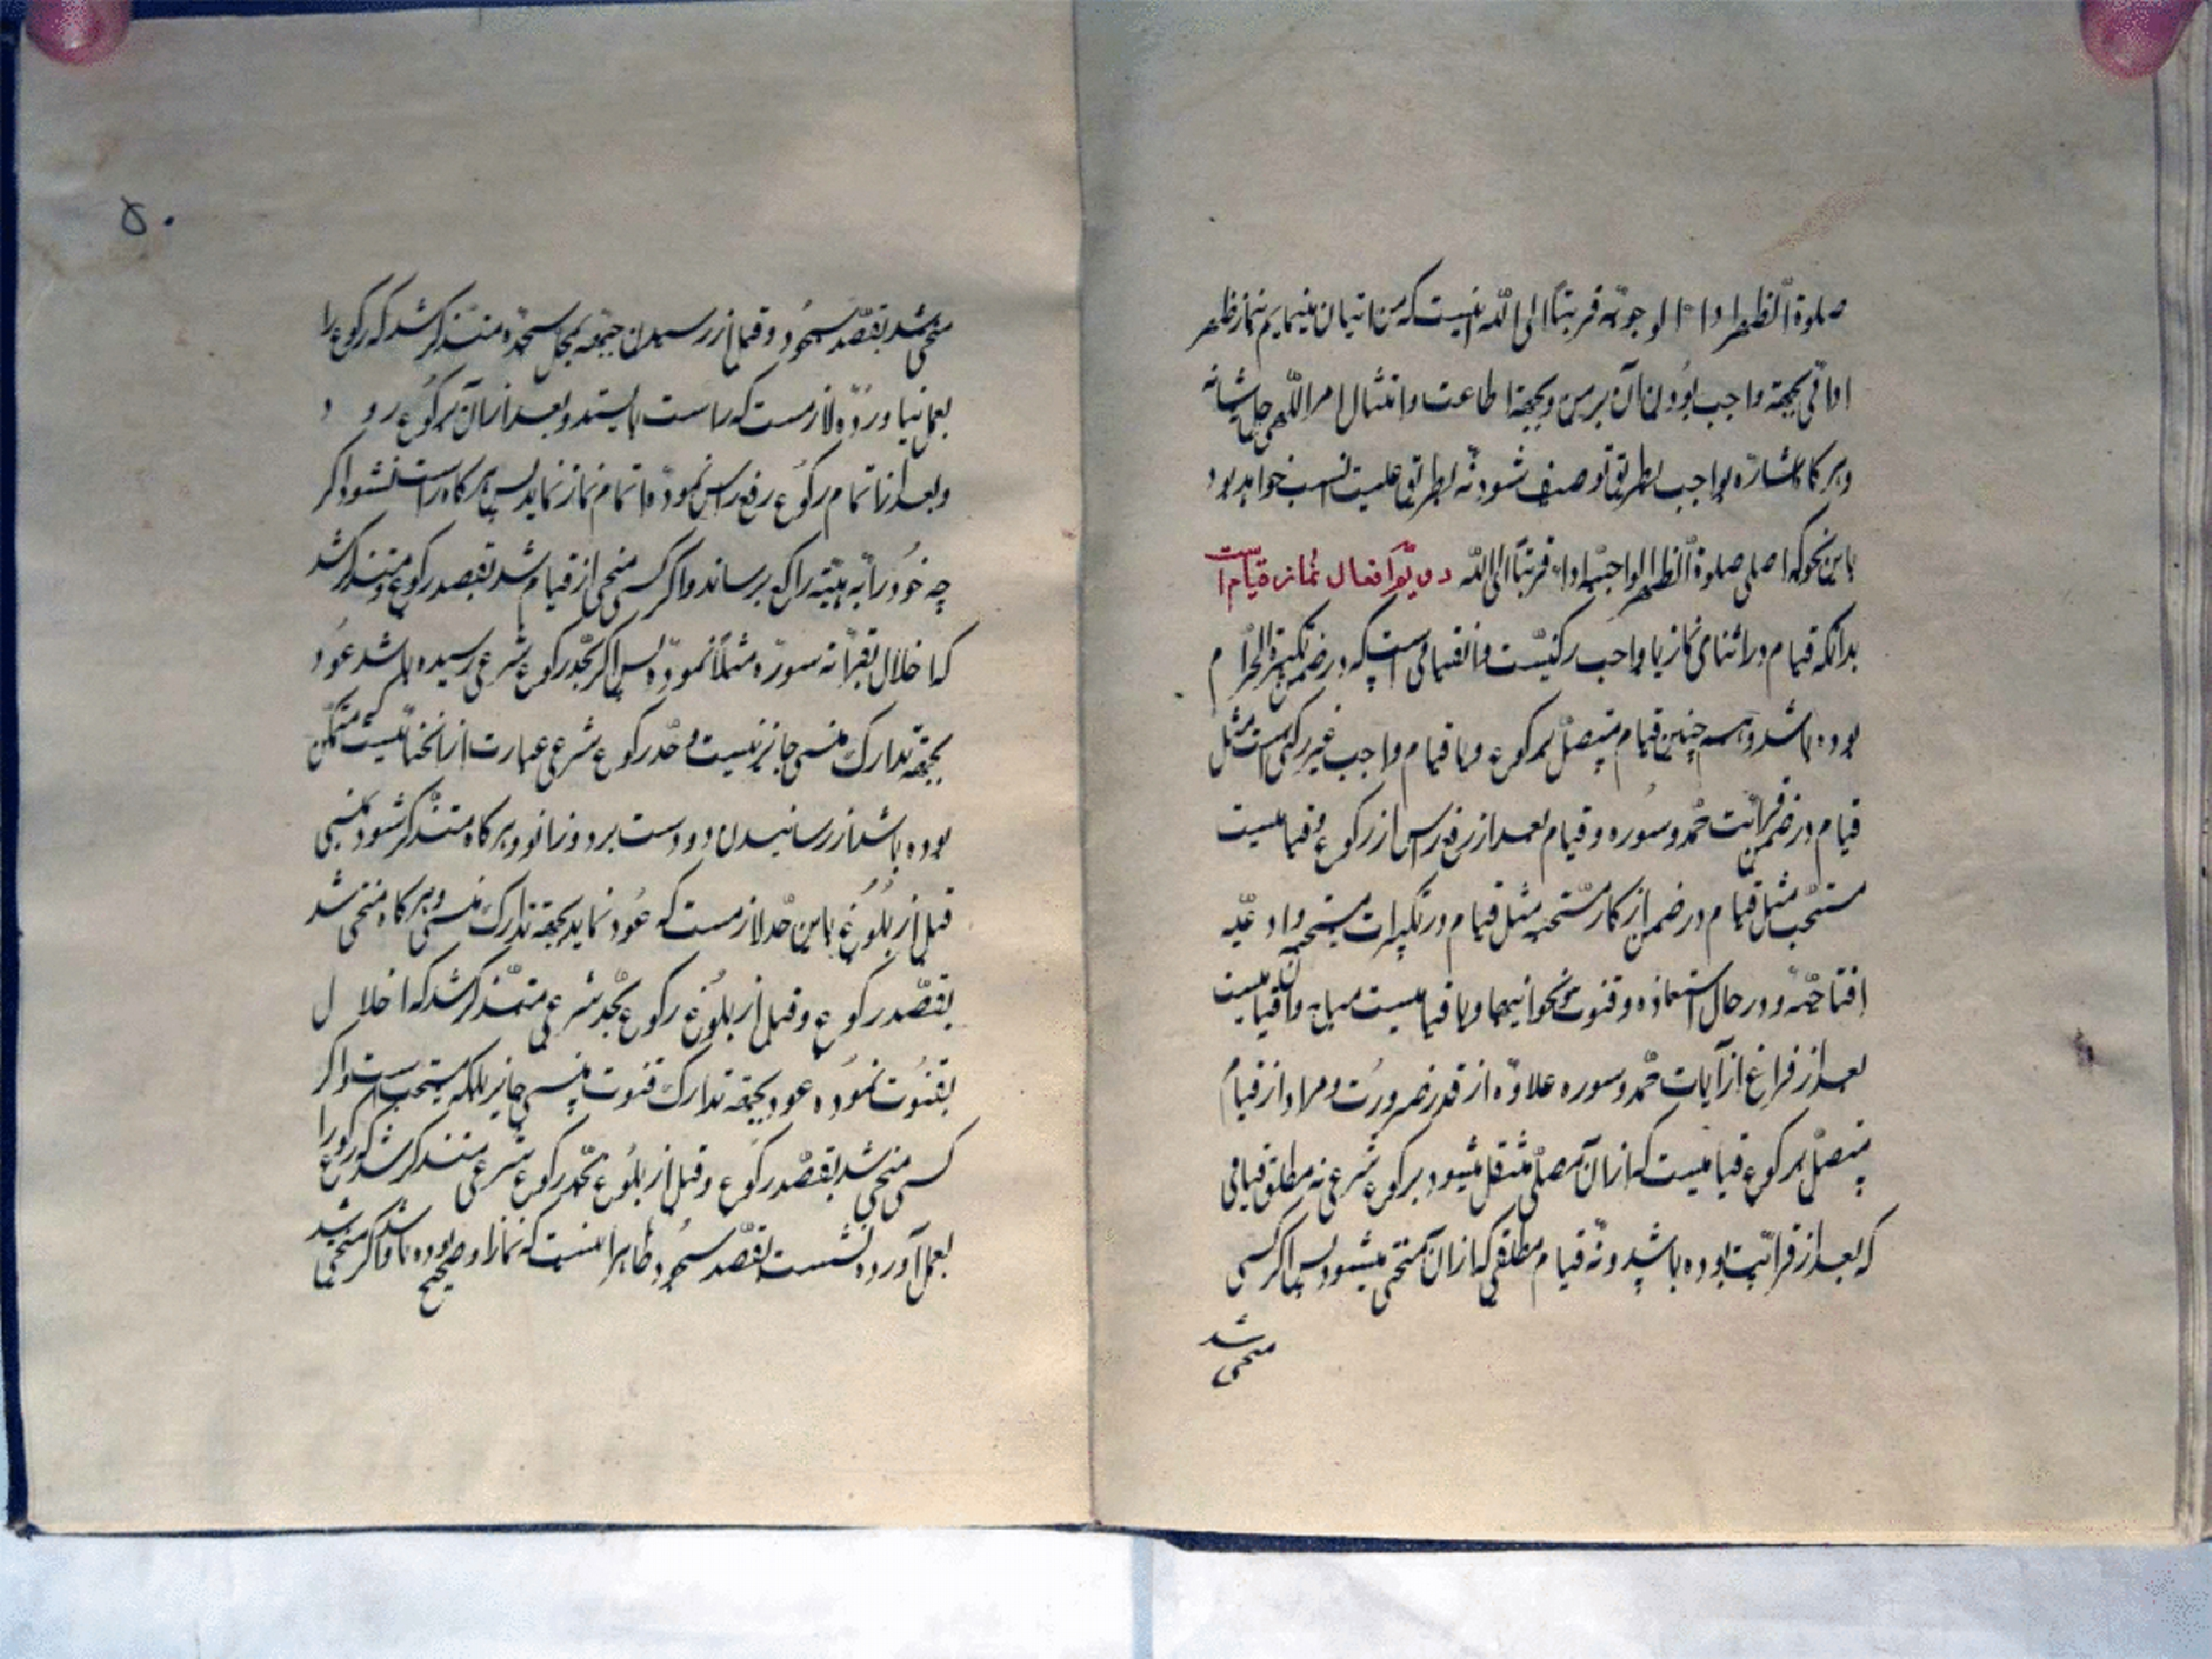 صلوة الظهر اداءً لوجوبه قربتاً الی الله اینست که من اتیان مینمایم نماز ظهر
ادائی بجهة واجب بودن آن بر من و بجهة اطاعت و امتثال امر اللهی جل شانه
و هرگاه اشاره بواجب بطریق توصیف شود نه بطریق علمیت انسب خواهد بود
باین نحو که اصلی صلوة الظهر الواجبة اداءً قربتاً الی الله دویّو افعال نماز قیام است
بدانکه قیام در اثنای نماز یا واجب رکنیست و آنقیامی است که در ضمن تکبیرة الاحرام
بوده باشد و همچنین قیام متصل برکوع و یا قیام واجب غیر رکنی است مثل
قیام در ضمن قرائت حمد و سوره و قیام بعد از رفع راس از رکوع و قیامیست
مستحب مثل قیام در ضمن اذکار مستحبه مثل قیام در تکبیرات مستحبه و ادعیه
افتتاحیه و در حال استعاذه و قنوت نحوانیها و یا قیامیست مباح و آن قیامیست
بعد از فراغ از آیات حمد و سوره علاوه از قدر ضرورت و مراد از قیام
متصل برکوع قیامیست که از آن مصلی منتقل میشود برکوع شرعی نه مطلق قیامی
که بعد از قرائت بوده باشد و نه قیام مطلقی که از آن منحنی میشود پس اگر کسی
منحنی شد
۵۰
منحنی شد بقصد سجود و قبل از رسیدن جبهه بمحل سجده متذکر شد که رکوع را
بعمل نیاورده لازمست که راست بایستد و بعد از آن برکوع رود
و بعد از اتمام رکوع رفع راس نموده اتمام نماز نماید پس هرگاه راست نشود اگر
چه خود را به هیئه راکع برساند و اگر کسی منحنی از قیام شد بقصد رکوع و متذکر شد
که اخلال بقرائة سوره مثلاً نموده پس اگر بحد رکوع شرعی رسیده باشد عود
بجهة تدارک منسی جایز نیست و حد رکوع شرعی عبارت از انحنائیست که متمکن
بوده باشد از رسانیدن دو دست بر دو زانو و هرگاه متذکر شود بمنسی
قبل از بلوغ باین حد لازمست که عود نماید بجهة تدارک منسی و هرگاه منحنی شد
بقصد رکوع و قبل از بلوغ رکوع بحد شرعی متذکر شد که اخلال
بقنوت نموده عود بجهة تدارک قنوت منسی جایز بلکه مستحب است و اگر
کسی منحنی شد بقصد رکوع و قبل از بلوغ بحد رکوع شرعی متذکر شد که رکوع را
بعمل آورده نشست بقصد سجود ظاهر اینست که نماز او صحیح بوده باشد و اگر منحنی شد